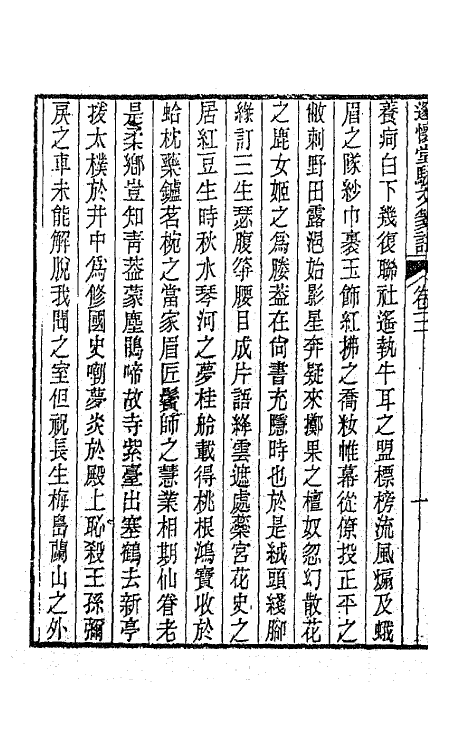 邃懷堂駢文箋註　卷三　一
養疴白下幾復聯社遙執牛耳之盟標榜流風煽及蛾
眉之隊紗巾裹玉飾紅拂之喬妝帷幕從僚投正平之
敝刺野田露浥始影星奔疑來擲果之檀奴忽幻散花
之鹿女姬之爲媵蓋在尙書充隱時也於是絨頭綫腳
緣訂三生瑟腹箏腰目成片語絳雲遮處蘂宮花史之
居紅豆生時秋水琴河之夢桂船載得桃根鴻寶收於
蛤枕藥鑪茗椀之當家眉匠鬢師之慧業相期仙眷老
是柔鄉豈知靑葢蒙塵鵑啼故寺紫臺出塞鶴去新亭
拔太樸於井中爲修國史嘲夢炎於殿上恥殺王孫彌
戾之車未能解脫我聞之室但祝長生梅嵒蘭山之外